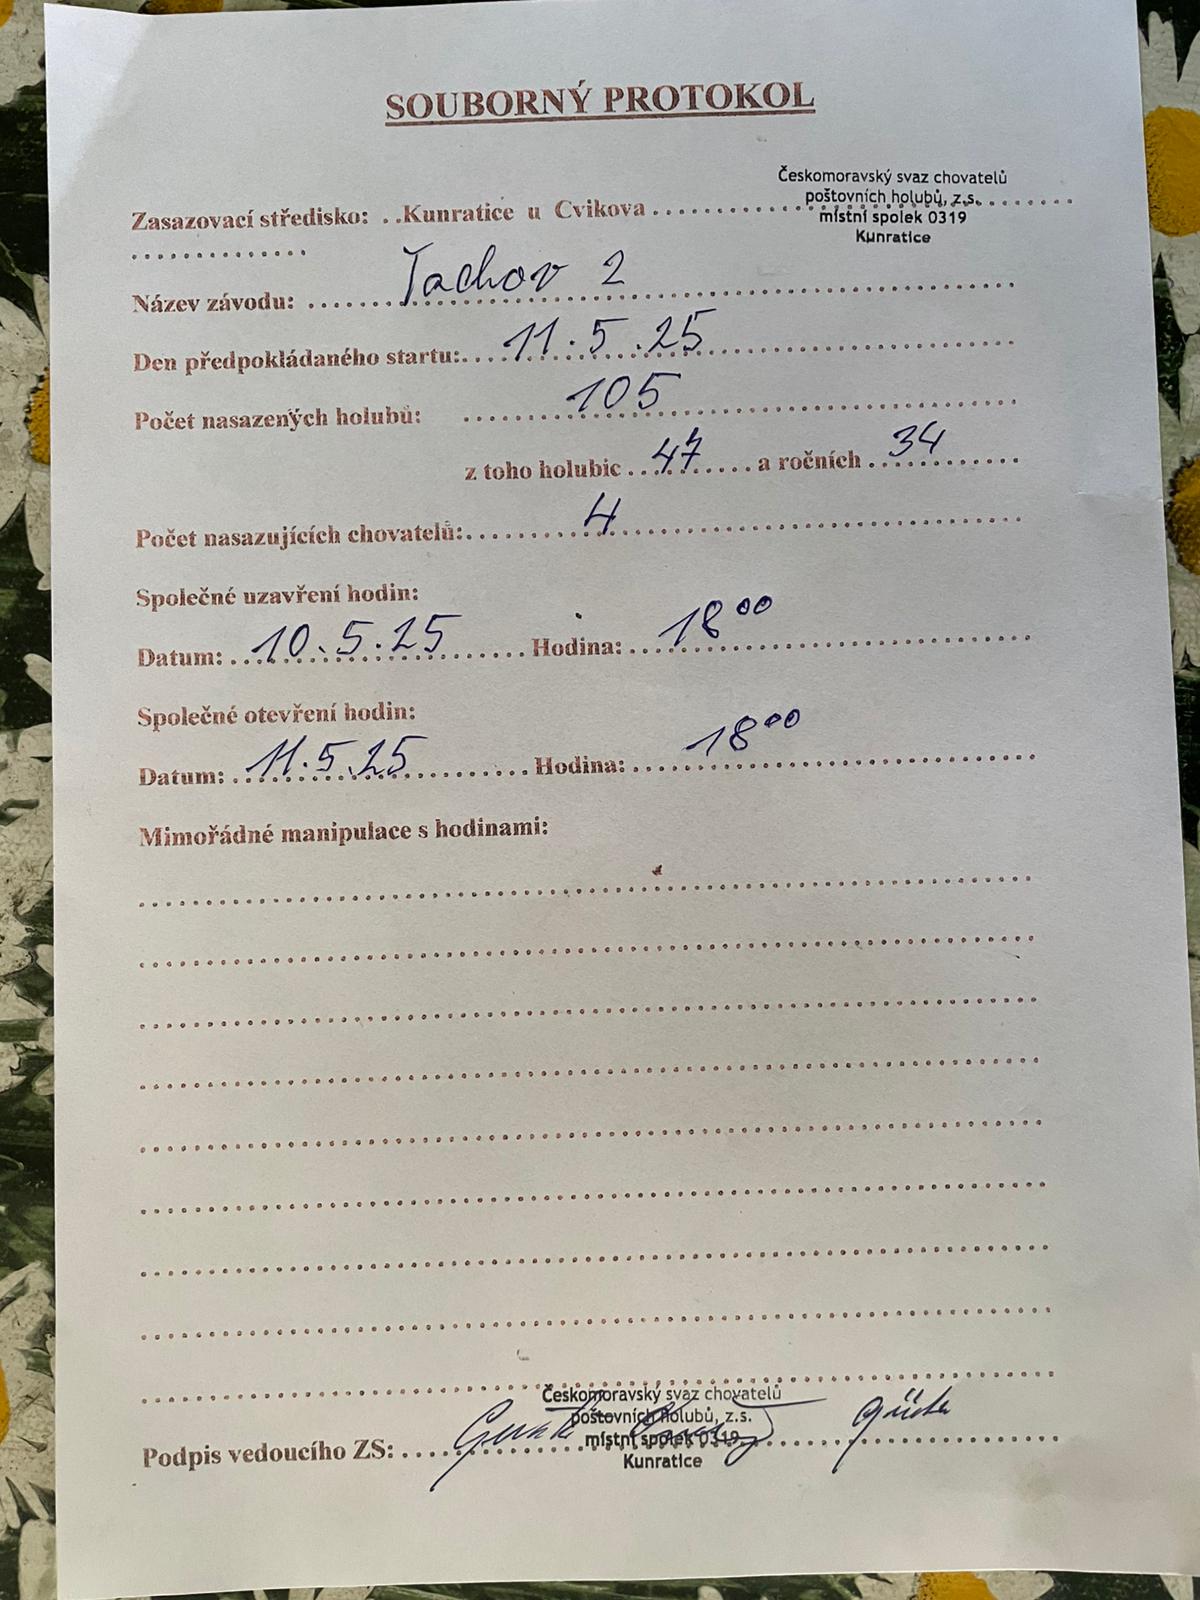 SOUBORNÝ PROTOKOL
Českomoravský svaz chovatelů
poštovních holubů, z.s.
místní spolek 0319
Kunratice
Zasazovací středisko: ..Kunratice u Cvikova
Název závodu: Tachov 2
Den předpokládaného startu: 11.5.25
Počet nasazených holubů: 105
z toho holubic 47 a ročních 34
Počet nasazujících chovatelů: 4
Společné uzavření hodin:
Datum: 10.5.25 Hodina: 18 00
Společné otevření hodin:
Datum: 11.5.25 Hodina: 18 00
Mimořádné manipulace s hodinami:
Českomoravský svaz chovatelů
poštovních holubů, z.s.
místní spolek 0319
Kunratice
Podpis vedoucího ZS: